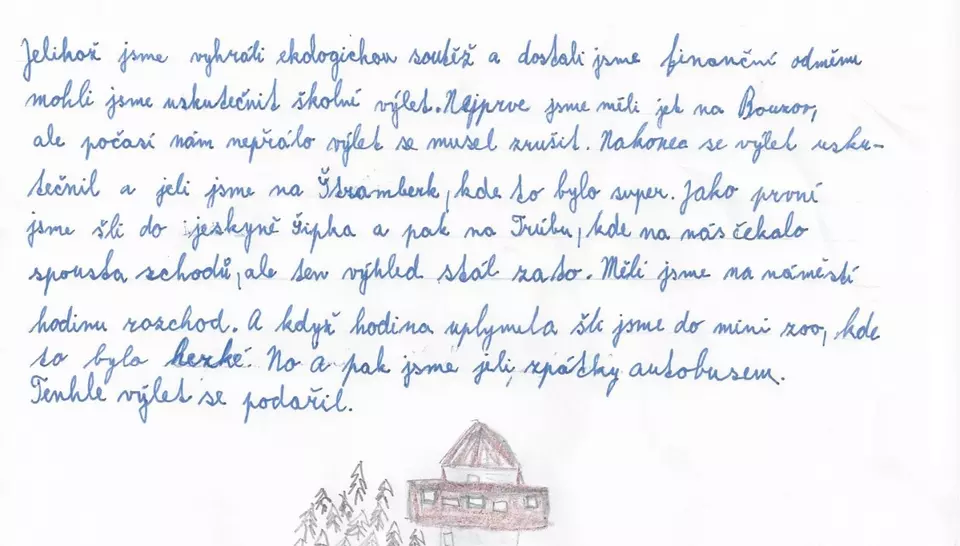 Jelikož jsme vyhráli ekologickou soutěž a dostali jsme finanční odměnu
mohli jsme uskutečnit školní výlet. Nejprve jsme měli jet na Bouzov,
ale počasí nám nepřálo výlet se musel zrušit. Nakonec se výlet usku-
tečnil a jeli jsme na Štramberk, kde to bylo super. Jako první
jsme šli do jeskyně Šipka a pak na Trúbu, kde na nás čekalo
spousta schodů, ale ten výhled stál za to. Měli jsme na náměstí
hodinu rozchod. A když hodina uplynula šli jsme do mini zoo, kde
to bylo hezké. No a pak jsme jeli zpátky autobusem.
Tenhle výlet se podařil.